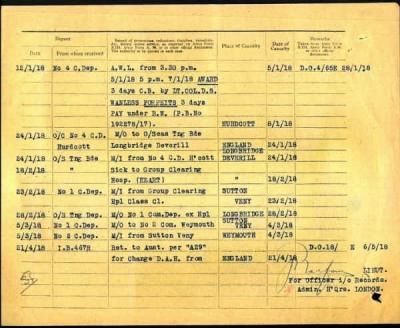 Report
Record of promotions, reductions, transfers, casualties, etc., during active service, as reported on Army Form B.213, Army Form A.36, or in other official documents.
Place of Casualty
Date of Casualty
Remarks
Date
From whom received
12/1/18 No 4 C.Dep. A.W.L. from 3.30 p.m. 5/1/18 D.O.4/65E 28/1/18
5/1/18 5 p.m. 7/1/18 AWARD
3 days C.B. by LT.COL.D.S.
WANLESS FORFEITS 3 days
PAY under R.W. (P.B.No
192278/17). HURDCOTT 8/1/18
24/1/18 O/C No 4 C.D. M/O to O/Seas Tng Bde
Hurdcott Longbridge Deverill ENGLAND 24/1/18
24/1/18 O/S Tng Bde M/I from No 4 C.D. H'cott LONGBRIDGE DEVERILL 24/1/18
18/2/18 " Sick to Group Clearing
Hosp. (HEART) " 18/2/18
23/2/18 No 1 C.Dep. M/I from Group Clearing SUTTON
Hpl Class C1. VENY 23/2/18
28/2/18 O/S Tng Dep. M/O No 1 Com.Dep. ex Hpl LONGBRIDGE 28/2/18
5/3/18 No 1 C.Dep. M/O to No 2 Com. Weymouth SUTTON VENY 4/3/18
5/3/18 No 2 C.Dep. M/I from Sutton Veny WEYMOUTH 4/3/18
21/4/18 I.B.467R Ret. to Aust. per "A29" D.O.18/ E 6/5/18
for Change D.A.H. from ENGLAND 21/4/18
LIEUT.
For Officer i/c Records.
Admin. H'Qrs. LONDON.